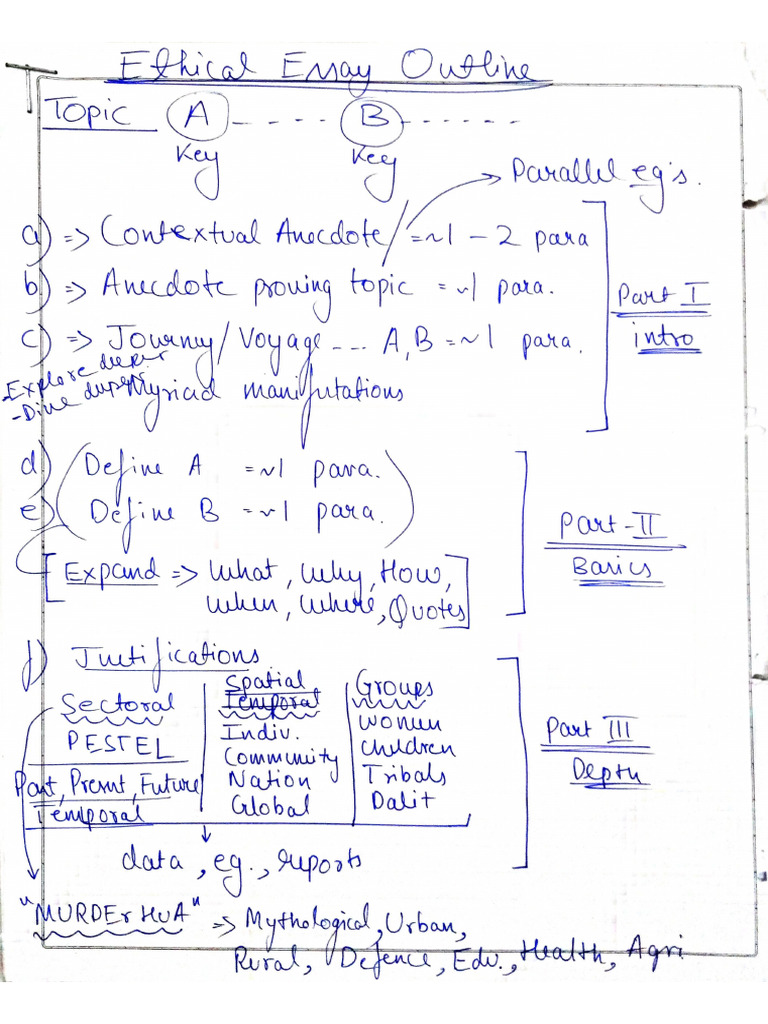 Ethical Essay Outline
Topic A ---- B ------
Key Key
Parallel eg's.
a) => Contextual Anecdote/ = ~1 - 2 para
b) => Anecdote proving topic = ~1 para.
c) => Journey/Voyage --- A,B = ~1 para.
Part I
intro
- Explore deeper
- Dive deeper
Myriad manifestations
d) (Define A = ~1 para.)
e) (Define B = ~1 para.)
Part - II
Basics
[Expand => What, Why, How,
When, Where, Quotes]
f) Justifications
Sectoral
PESTEL
Past, Present, Future
Temporal
Spatial
Temporal
Indiv.
Community
Nation
Global
Groups
Women
Children
Tribals
Dalit
Part III
Depth
data, eg., reports
"MURDEr HUA" => Mythological, Urban,
Rural, Defence, Edu., Health, Agri